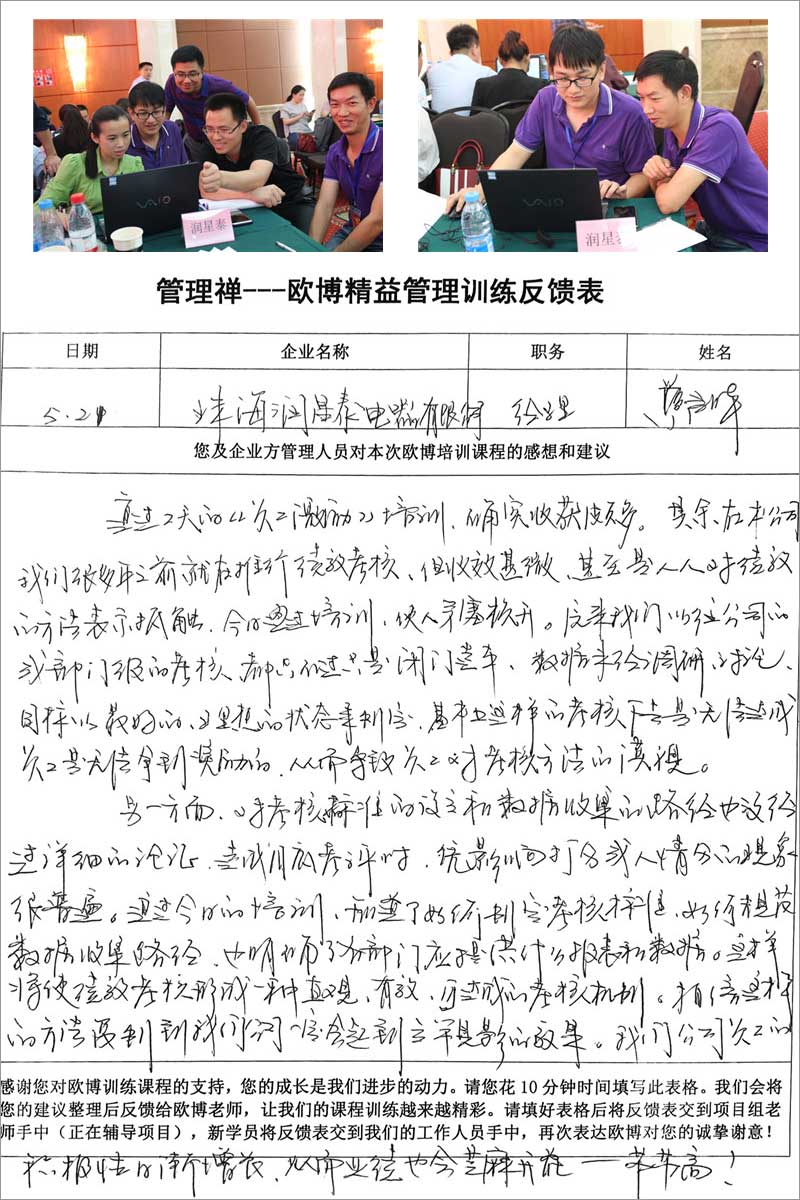 VAIO
润星泰
VAIO
润星泰
管理禅---欧博精益管理训练反馈表
日期 企业名称 职务 姓名
5.21 珠海润星泰电器有限公司 经理
您及企业方管理人员对本次欧博培训课程的感想和建议
通过2天的《员工激励》培训，确实收获颇多。其实在本公司
我们很多年之前就在推行绩效考核，但收效甚微，甚至是人人对绩效
的方法表示抵触，今日通过培训，使人茅塞顿开。原来我们以往公司的
或部门级的考核，都只不过只是闭门造车，数据未经调研、讨论，
目标以最好的、理想的状态来制定，基本上这样的考核下去是无法达成
员工是无法拿到奖励的，从而导致员工对考核方法的漠视。
另一方面，对考核标准的设立和数据收集的路径也没经
过详细的论证，造成月底考评时，凭影响打分或人情分的现象
很普遍。通过今日的培训，知道了如何制定考核标准，如何提及
数据收集路径，也明晰了各部门应提供什么报表和数据。这样
将使绩效考核形成一种直观、有效、可达成的考核机制。相信这样
的方法复制到我们公司一定会起到立竿见影的效果。我们公司员工的
感谢您对欧博训练课程的支持，您的成长是我们进步的动力。请您花10分钟时间填写此表格。我们会将
您的建议整理后反馈给欧博老师，让我们的课程训练越来越精彩。请填好表格后将反馈表交到项目组老
师手中（正在辅导项目），新学员将反馈表交到我们的工作人员手中，再次表达欧博对您的诚挚谢意！
积极性日渐增长，从而业绩也会芝麻开花——节节高！